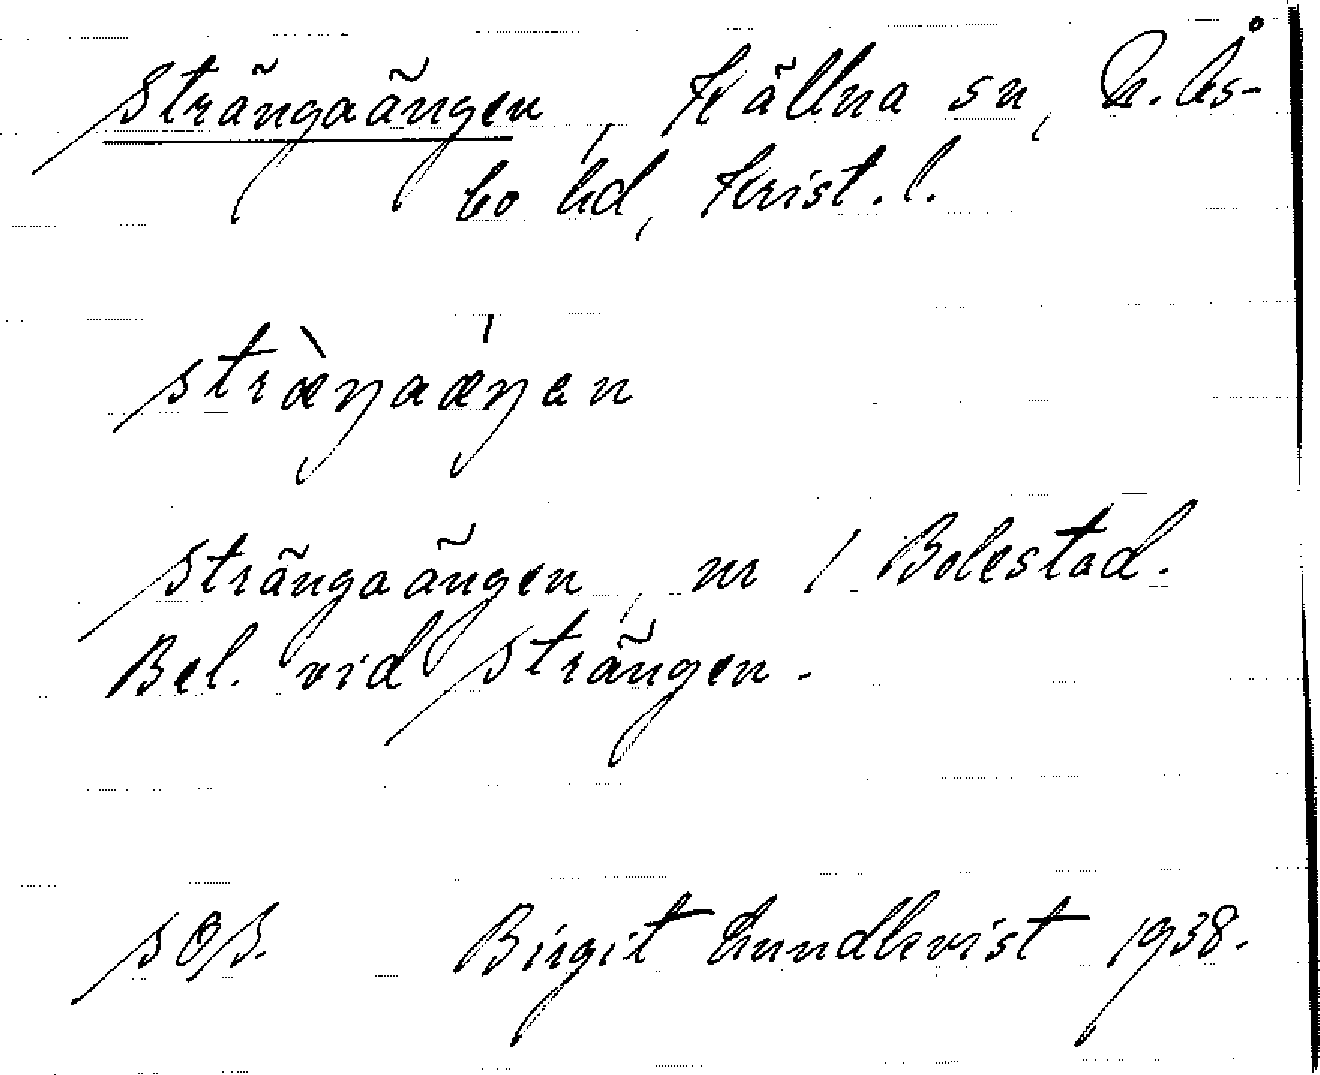 Strängaängen, Källna sn, N. Ås-
bo hd, Krist. l.
stræ̀ŋaǽŋan
Strängaängen, nr 1 Bolestad.
Bel. vid Strängen.
SOS. Birgit Lundkvist 1938.